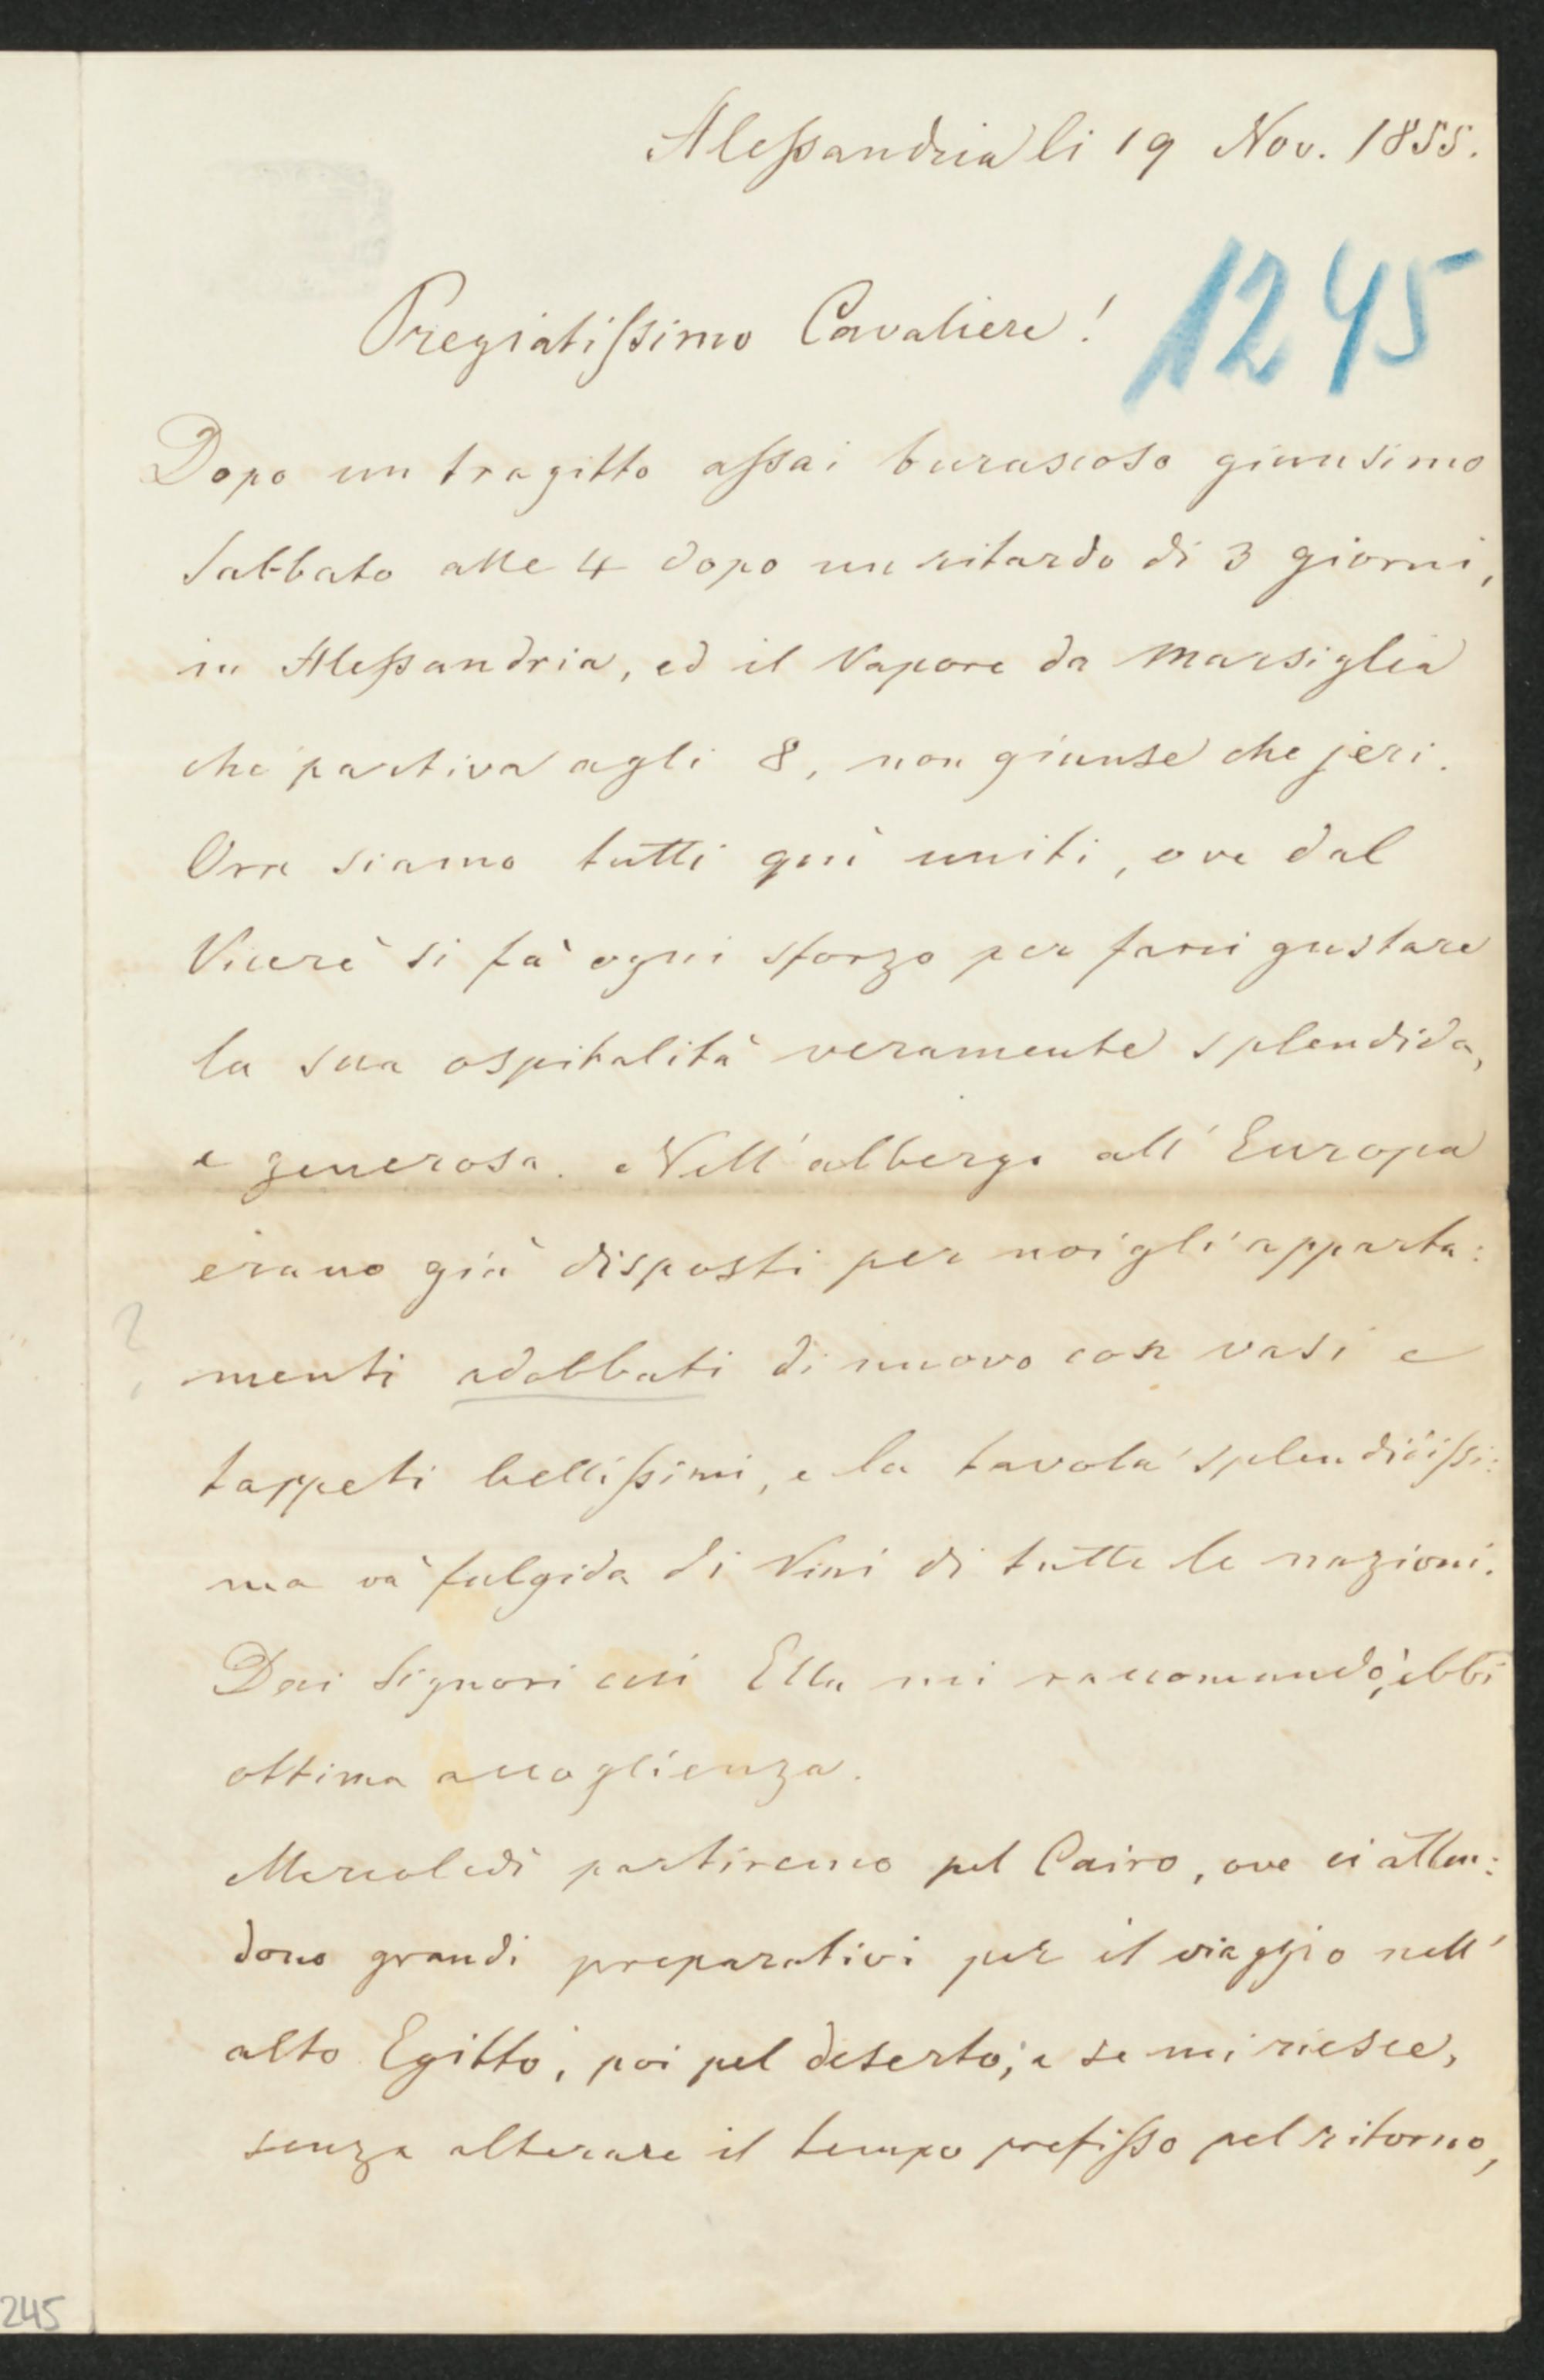 Alessandria li 19 Nov. 1855.
1245
Pregiatissimo Cavaliere!
Dopo un tragitto assai burascoso giunsimo
Sabbato alle 4 dopo un ritardo di 3 giorni,
in Alessandria, ed il Vapore da Marsiglia
che partiva agli 8, non giunse che jeri.
Ora siamo tutti quì uniti, ove dal
Vicerè si fà ogni sforzo per farci gustare
la sua ospitalità veramente splendida,
e generosa. Nell' albergo all' Europa
erano già disposti per noi gli apparta:
? menti adobbati di nuovo con vasi e
tappeti bellissimi, e la tavola splendidissi:
ma và fulgida di Vini di tutte le nazioni.
Dai Signori cui Ella mi raccomandò, ebbi
ottima accoglienza.
Mercoledì partiremo pel Cairo, ove ci atten:
dono grandi preparativi per il viaggio nell'
alto Egitto, poi pel deserto; e se mi riesce,
senza alterare il tempo prefisso pel ritorno,
245